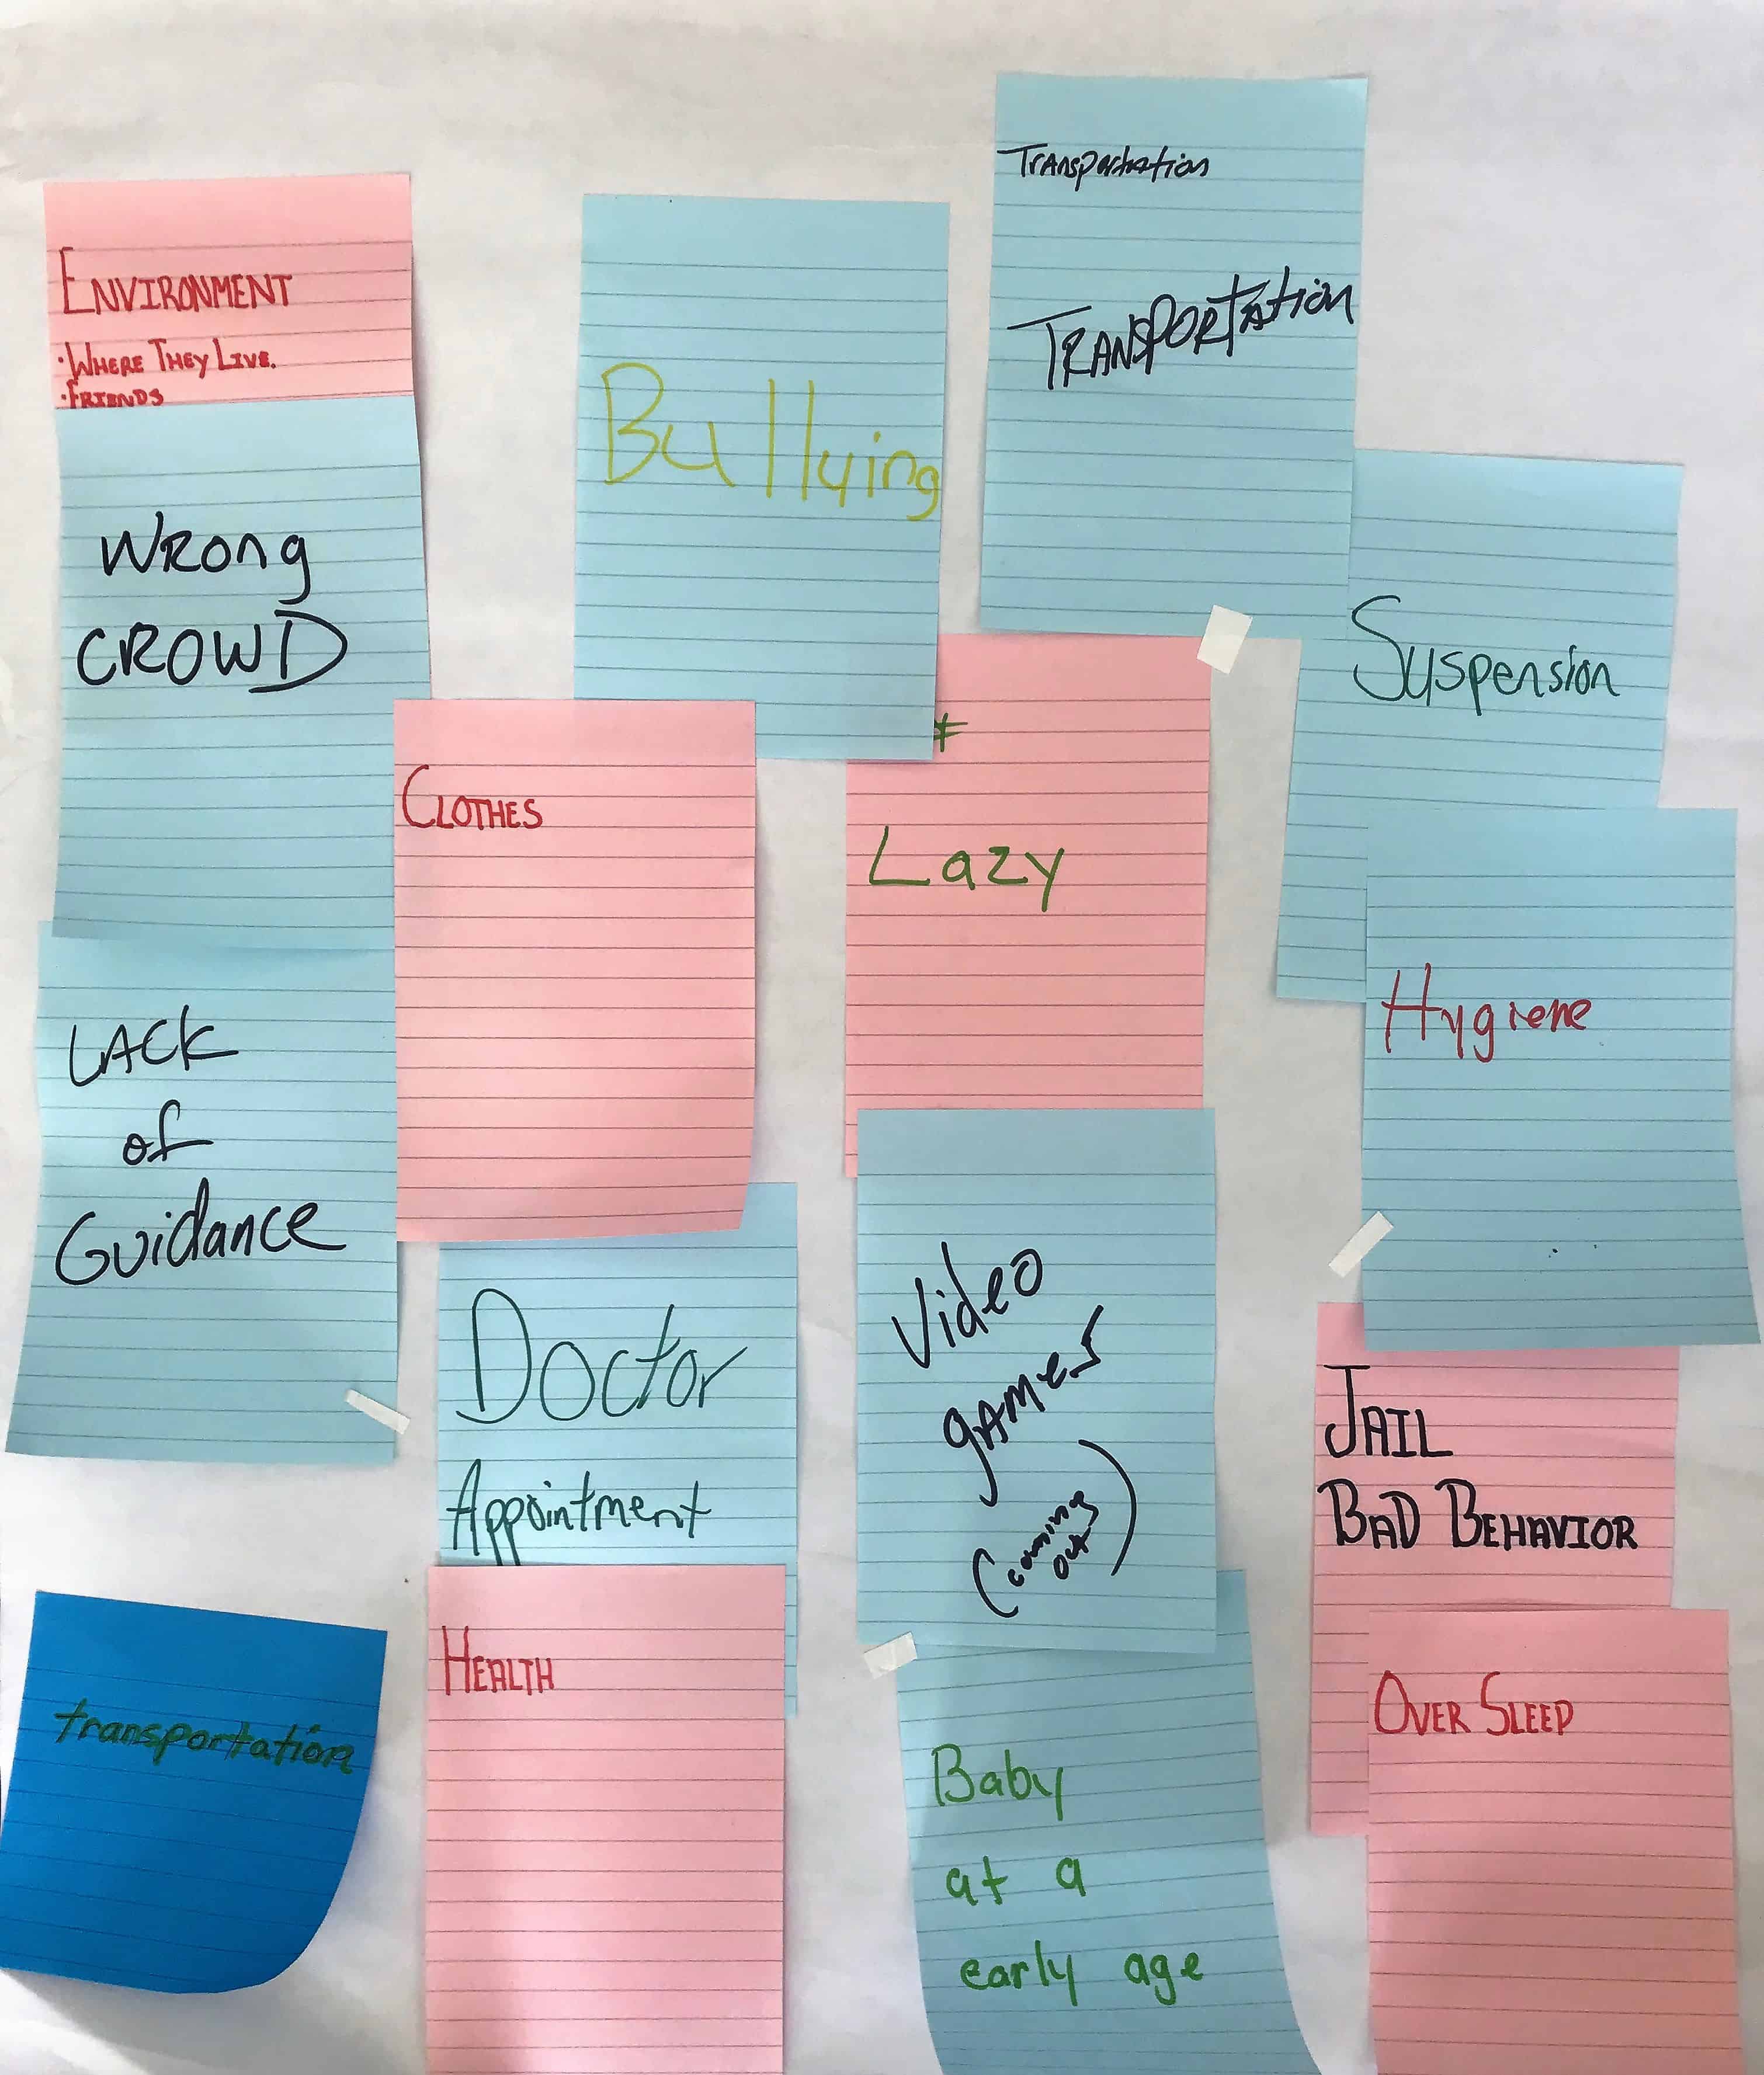 ENVIRONMENT
·WHERE THEY LIVE.
·FRIENDS
WRong
CROWD
LACK
of
Guidance
transportation
Bullying
CLOTHES
Doctor
Appointment
HEALTH
Transportation
TRANSPORTATion
*
Lazy
Video
gAMes
(coming
out)
Baby
at a
early age
Suspension
Hygiene
JAIL
BAD BEHAVIOR
OVER SLEEP